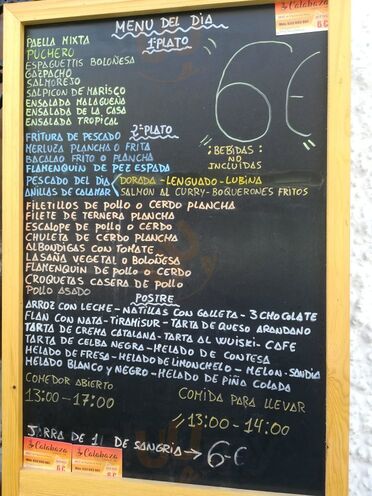 MENU DEL DIA
1º PLATO
PAELLA MIXTA
PUCHERO
ESPAGUETTIS BOLOÑESA
GAZPACHO
SALMOREJO
SALPICON DE MARISCO
ENSALADA MALAGUEÑA
ENSALADA DE LA CASA
ENSALADA TROPICAL
6€
:BEBIDAS:
NO
INCLUIDAS
2º PLATO
FRITURA DE PESCADO
MERLUZA PLANCHA O FRITA
BACALAO FRITO O PLANCHA
FLAMENQUIN DE PEZ ESPADA
PESCADO DEL DIA DORADA - LENGUADO - LUBINA
ANILLAS DE CALAMAR SALMON AL CURRY - BOQUERONES FRITOS
FILETILLOS DE POLLO O CERDO PLANCHA
FILETE DE TERNERA PLANCHA
ESCALOPE DE POLLO O CERDO
CHULETA DE CERDO PLANCHA
ALBONDIGAS CON TOMATE
LASAÑA VEGETAL O BOLOÑESA
FLAMENQUIN DE POLLO O CERDO
CROQUETAS CASERA DE POLLO
POLLO ASADO
POSTRE
ARROZ CON LECHE - NATILLAS CON GALLETA - 3 CHOCOLATE
FLAN CON NATA - TIRAMISUR - TARTA DE QUESO ARANDANO
TARTA DE CREMA CATALANA - TARTA AL WUISKI - CAFE
TARTA DE CELBA NEGRA - HELADO DE CONTESA
HELADO DE FRESA - HELADO DE LIMONCHELO - MELON - SANDIA
HELADO BLANCO Y NEGRO - HELADO DE PIÑA COLADA
COMEDOR ABIERTO
13:00 - 17:00
COMIDA PARA LLEVAR
13:00 - 14:00
JARRA DE 1L DE SANGRIA → 6€
Calabaza
6€
Calabaza
6€
Calabaza
6€